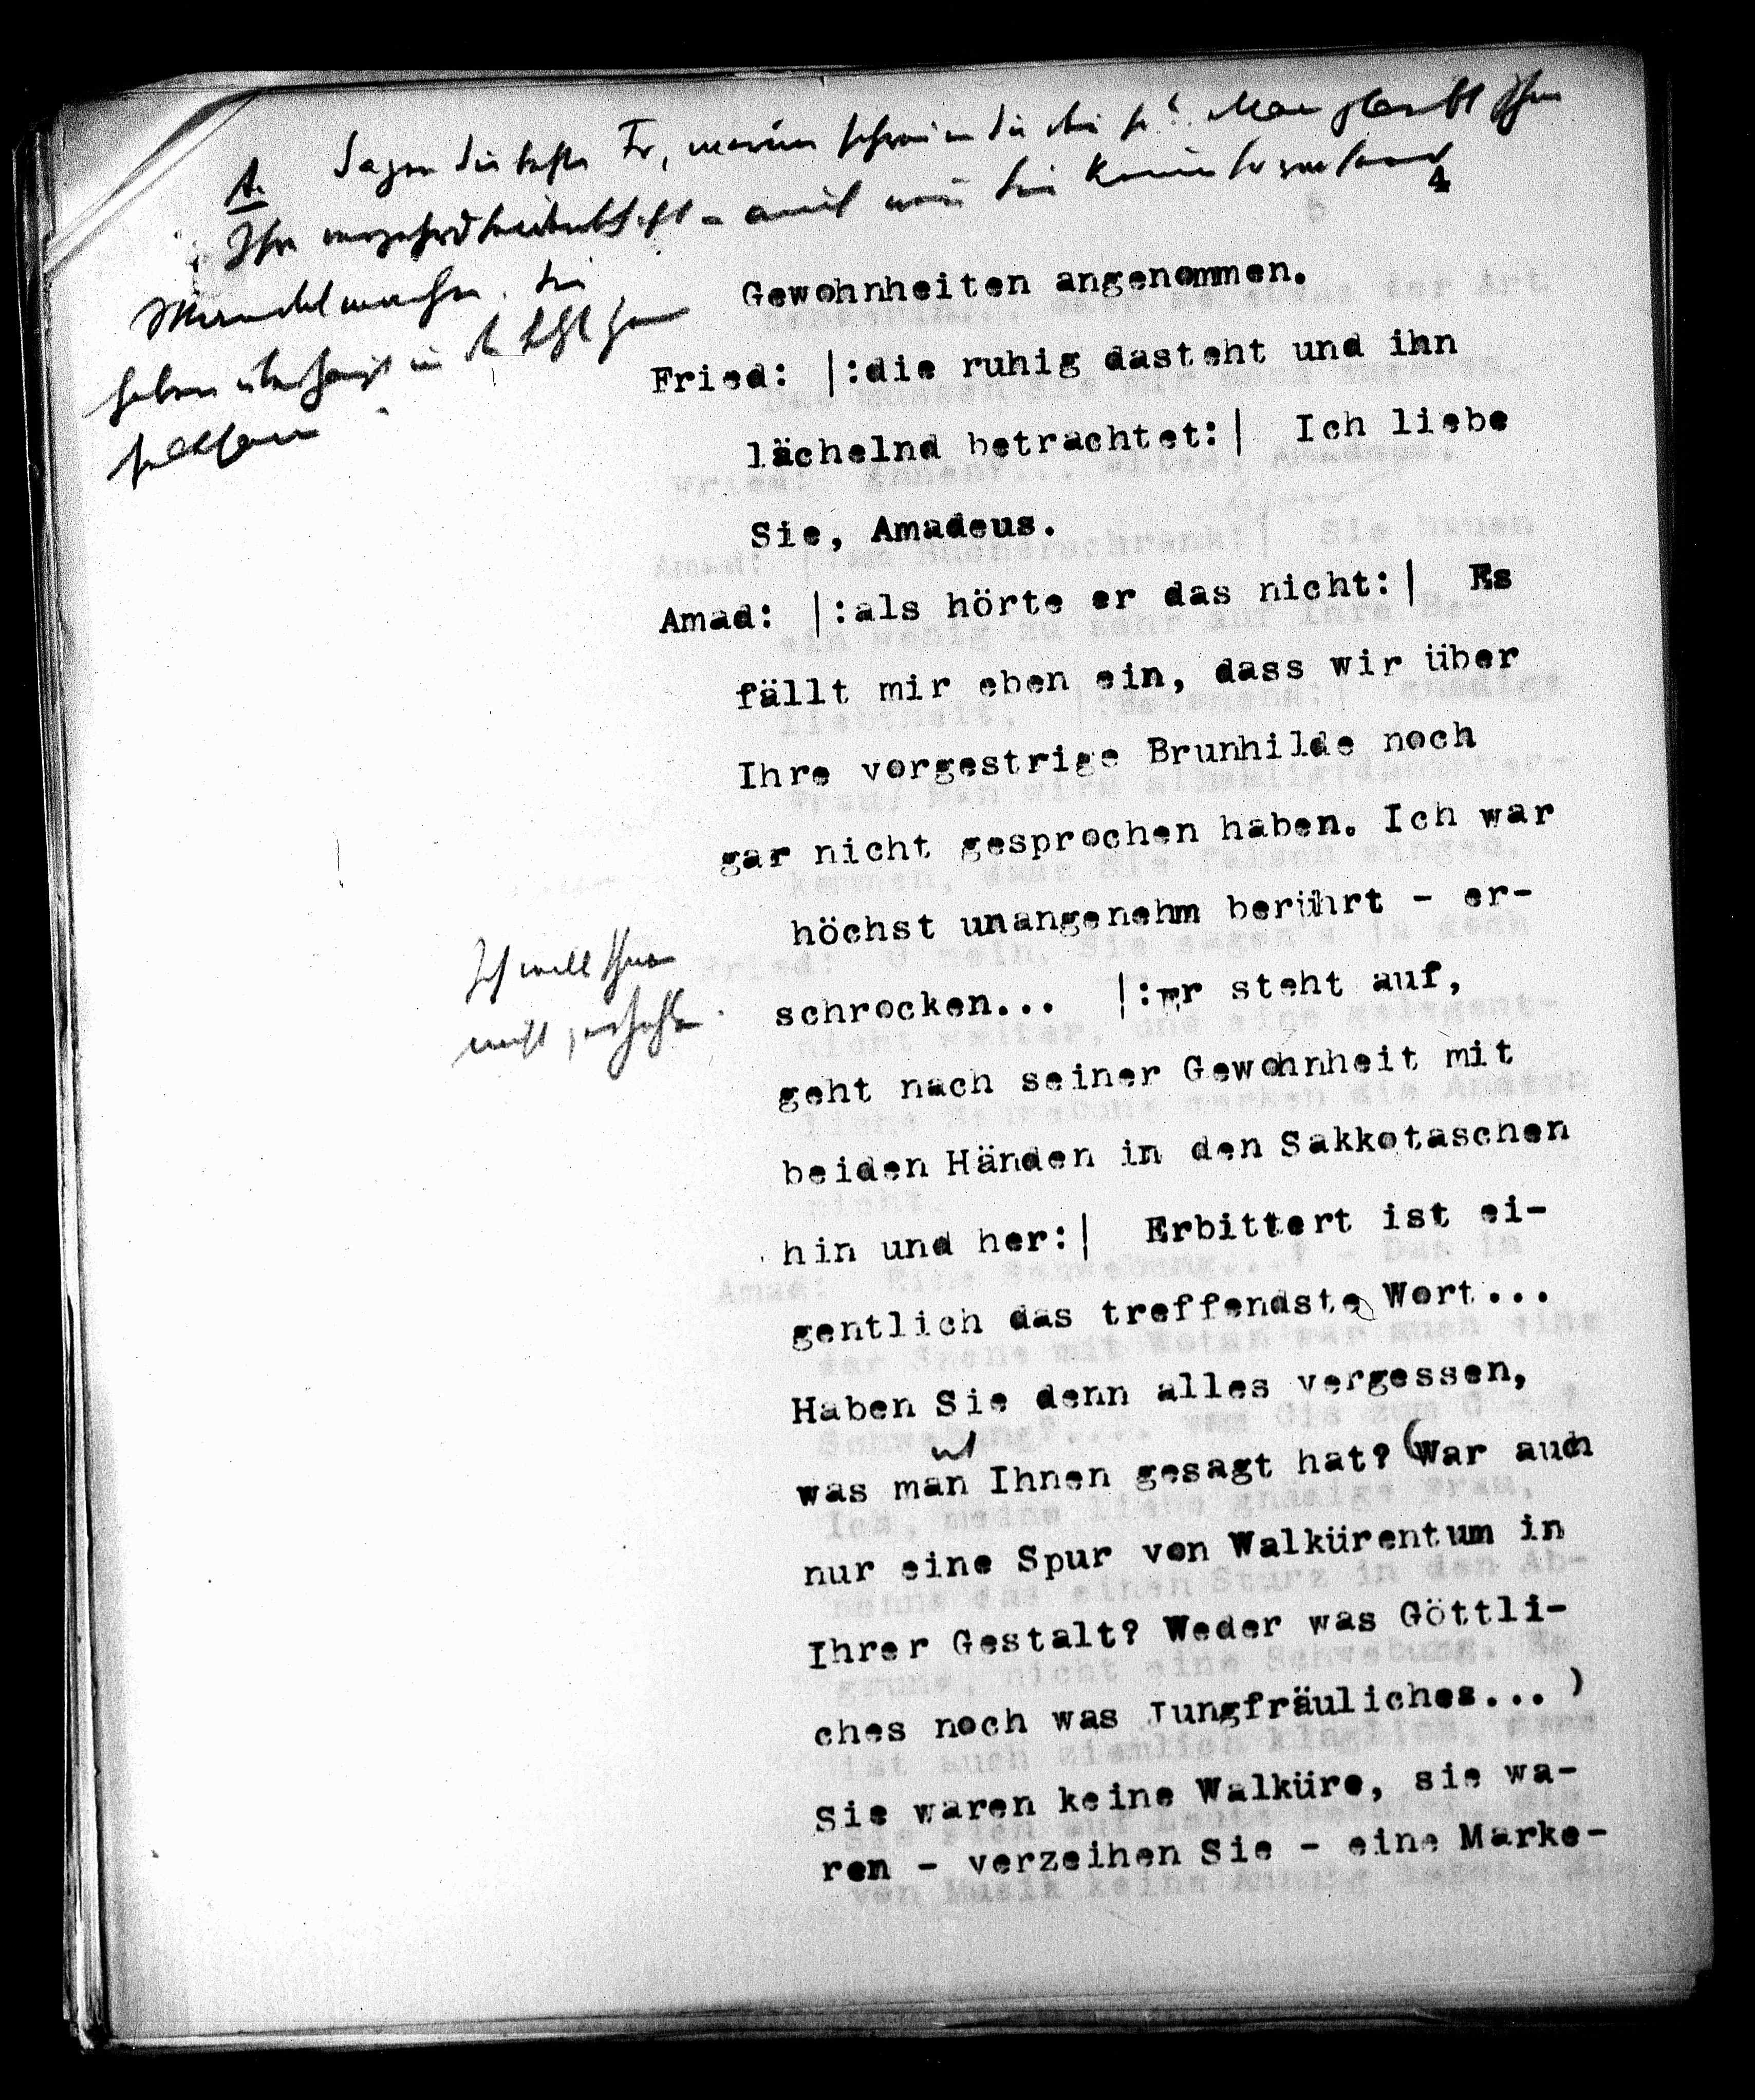 A. Sagen Sie liebste Fr, warum schreien Sie denn so? Man glaubt Ihnen
Ihre
4
Gewohnheiten angenommen.
Fried: |:die ruhig dasteht und ihn
lächelnd betrachtet:| Ich liebe
Sie, Amadeus.
Amad: |:als hörte er das nicht:| Es
fällt mir eben ein, dass wir über
Ihre vorgestrige Brunhilde noch
gar nicht gesprochen haben. Ich war
höchst unangenehm berührt - er-
Ich will Ihnen
nicht verhehlen.
schrocken... |:er steht auf,
geht nach seiner Gewohnheit mit
beiden Händen in den Sakkotaschen
hin und her:| Erbittert ist ei-
gentlich das treffendste Wort...
Haben Sie denn alles vergessen,
was man Ihnen gesagt hat? (War auch
nur eine Spur von Walkürentum in
Ihrer Gestalt? Weder was Göttli-
ches noch was Jungfräuliches...)
Sie waren keine Walküre, sie wa-
ren - verzeihen Sie - eine Marke-